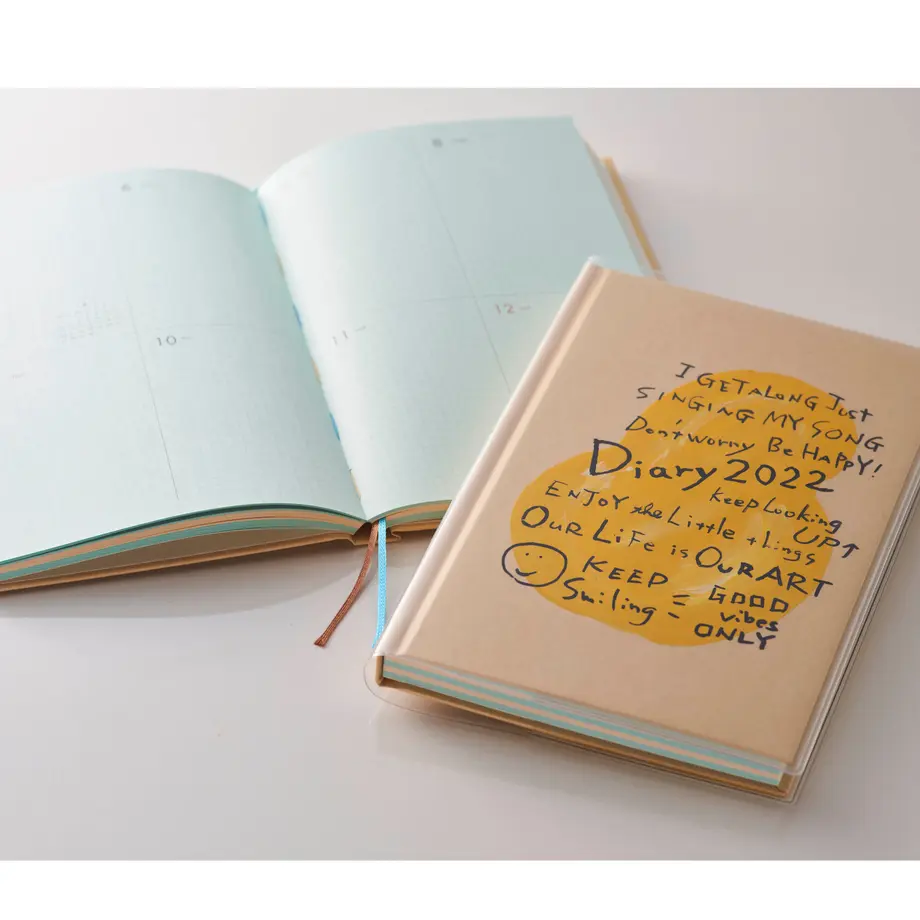 10
11
12
I GET ALONG JUST
SINGING MY SONG
Don't worry Be HAPPY!
Diary 2022
Keep Looking
UP↑
ENJOY the Little things
OUR LIFE is OUR ART
KEEP
Smiling =
GOOD
vibes
ONLY